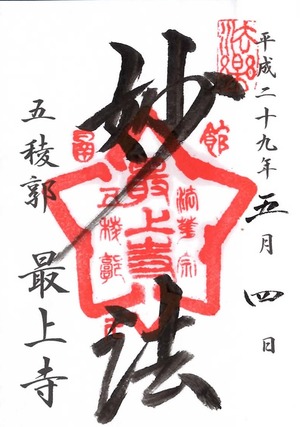 平成二十九年五月四日
妙法
五稜郭 最上寺
法華宗
最上寺
五稜郭
函
館